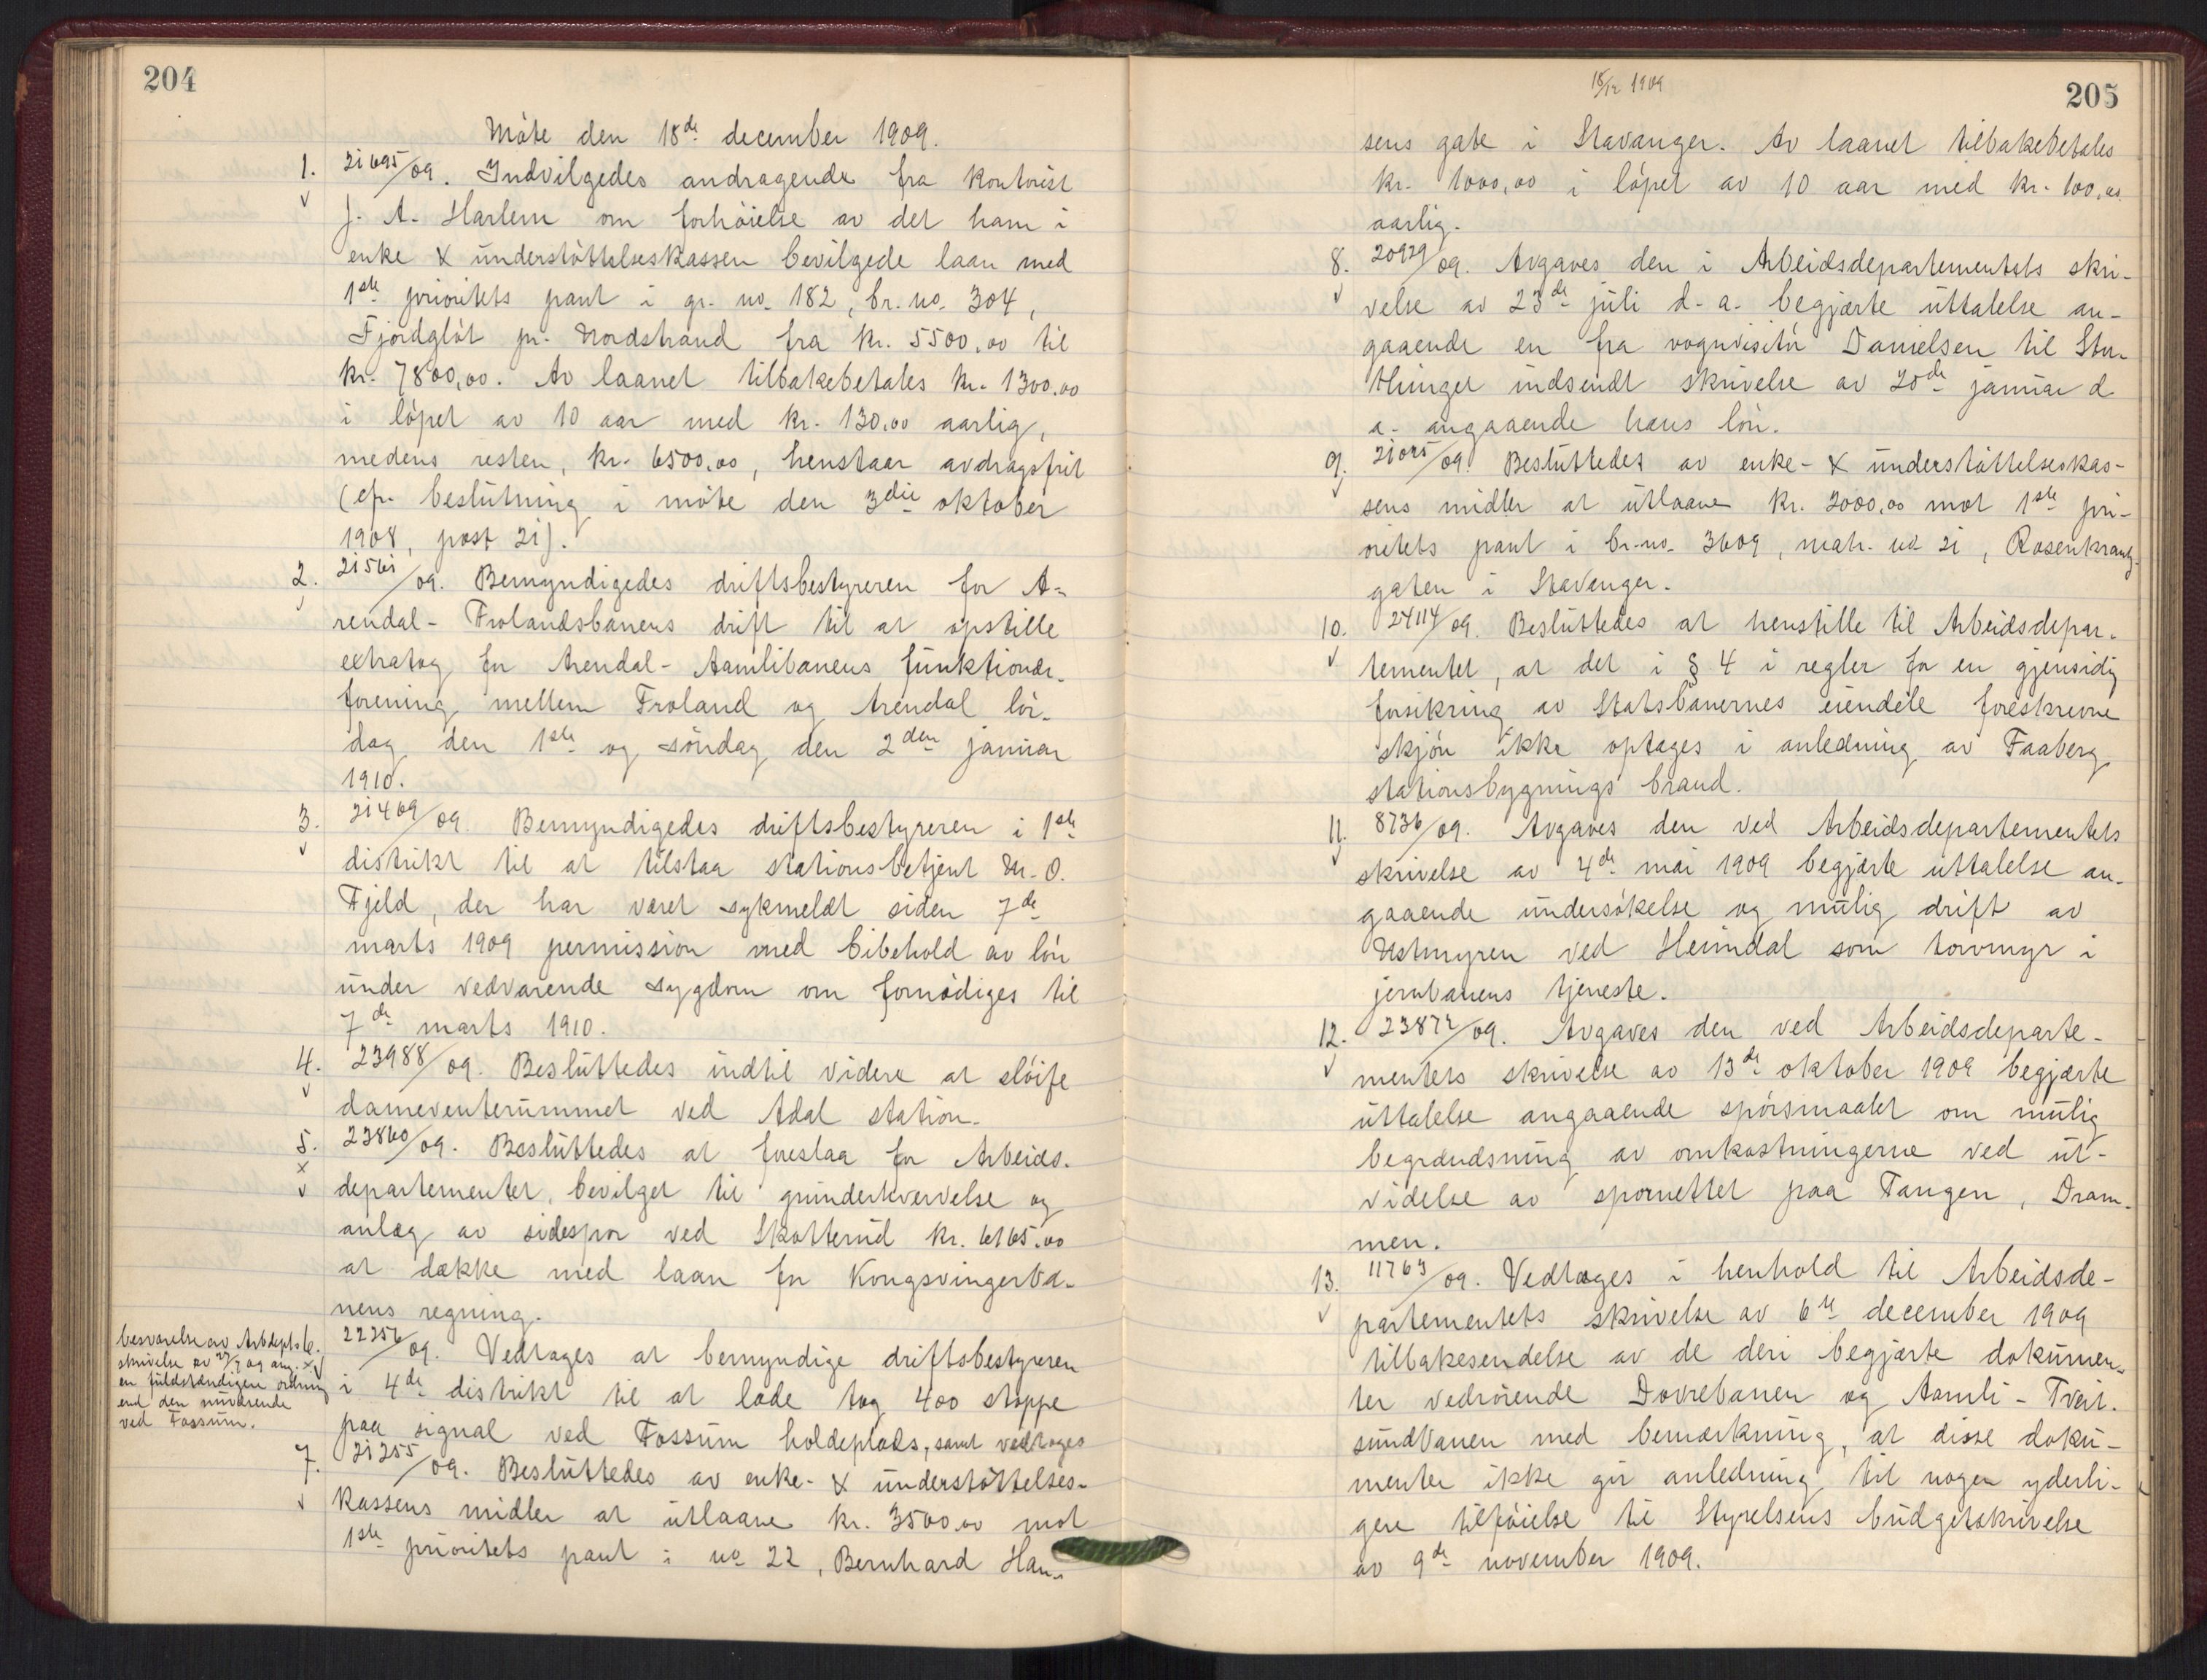 204
Møte den 18de december 1909.
1. 21695/09. Indvilgedes andragende fra kontorist
J. A. Harlem om forhøielse av det ham i
enke & understøttelseskassen bevilgede laan med
1ste prioritets pant i gr. no. 182, br. no. 304,
Fjordgløt pr. Nordstrand fra kr. 5500,00 til
kr. 7800,00. Av laanet tilbakebetales kr. 1300.00
i løpet av 10 aar med kr. 130,00 aarlig,
medens resten, kr. 6500,00, henstaar avdragsfrit
(cfr. beslutning i møte den 3die oktober
1908, post 21).
2. 21561/09. Bemyndigedes driftsbestyreren for A-
rendal- Frolandsbanens drift til at opstille
extratog for Arendal- Aamlibanens funktionær-
forening mellem Froland og Arendal lør-
dag den 1ste og søndag den 2den januar
1910.
3. 21409/09. Bemyndigedes driftsbestyreren i 1ste
distrikt til at tilstaa stationsbetjent M. O.
Fjeld, der har været sykmeldt siden 7de
marts 1909 permission med bibehold av løn
under vedvarende sygdom om fornødiges til
7de marts 1910.
4. 23988/09. Besluttedes indtil videre at sløife
dameventerummet ved Adal station.
5. 23860/09. Besluttedes at foreslaa for Arbeids-
departementet, bevilget til grunderhvervelse og
anlæg av sidespor ved Skotterud kr. 6165.00
at dække med laan for Kongsvingerba-
nens regning.
6. 22256/09. Vedtages at bemyndige driftsbestyreren
i 4de distrikt til at lade tog 400 stoppe
paa signal ved Fossum holdeplads, samt vedtages
besvarelse av Arbdepts
skrivelse av 27/9 09 ang.
en fuldstændigere ordning
end den nuværende
ved Fossum.
7. 21255/09. Besluttedes av enke- & understøttelses-
kassens midler at utlaane kr. 3500.00 mot
1ste prioritets pant i no 22, Bernhard Han-
18/12 1909
205
sens gate i Stavanger. Av laanet tilbakebetales
kr. 1000,00 i løpet av 10 aar med kr. 100,00
aarlig.
8. 20929/09. Avgaves den i Arbeidsdepartementets skri-
velse av 23de juli d. a. begjærte uttalelse an-
gaaende en fra vognvisitør Danielsen til Stor-
thinget indsendt skrivelse av 20de januar d
a. angaaende hans løn.
9. 21025/09. Besluttedes av enke- & understøttelseskas-
sens midler at utlaane kr. 2000.00 mot 1ste pri-
oritets pant i br. no. 3609, matr. no 21, Rosenkrantz-
gaten i Stavanger.
10. 24114/09. Besluttedes at henstille til Arbeidsdepar-
tementet, at det i § 4 i regler for en gjensidig
forsikring av Statsbanernes eiendele foreskrevne
skjøn ikke optages i anledning av Faaberg
stationsbygnings brand.
11. 8736/09. Avgaves den ved Arbeidsdepartementets
skrivelse av 4de mai 1909 begjærte uttalelse an-
gaaende undersøkelse og mulig drift av
Ustmyren ved Heimdal som torvmyr i
jernbanens tjeneste.
12. 23872/09. Avgaves den ved Arbeidsdeparte-
mentets skrivelse av 13de oktober 1909 begjærte
uttalelse angaaende spørsmaalet om mulig
begrændsning av omkostningerne ved ut-
videlse av spornettet paa Tangen, Dram-
men.
13. 11763/09. Vedtoges i henhold til Arbeidsde-
partementets skrivelse av 6te december 1909
tilbakesendelse av de deri begjærte dokumen-
ter vedrørende Dovrebanen og Aamli - Tveit-
sundbanen med bemærkning, at disse doku-
menter ikke gir anledning til nogen yderli-
gere tilføielse til Styrelsens budgetskrivelse
av 9de november 1909.